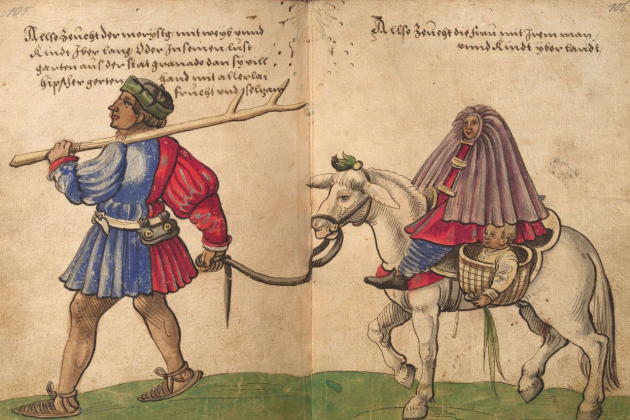 105.
Allso Zeucht der morystg mit weyb vnnd
Kindt Jber lang Oder Jn seinen lust
garten aus der stat granado dan sy vill
hipscher gerten hand mit allerlai
frucht vnd
106.
Allso Zeucht die Frau mit Jrem man
vnnd Kindt yber landt